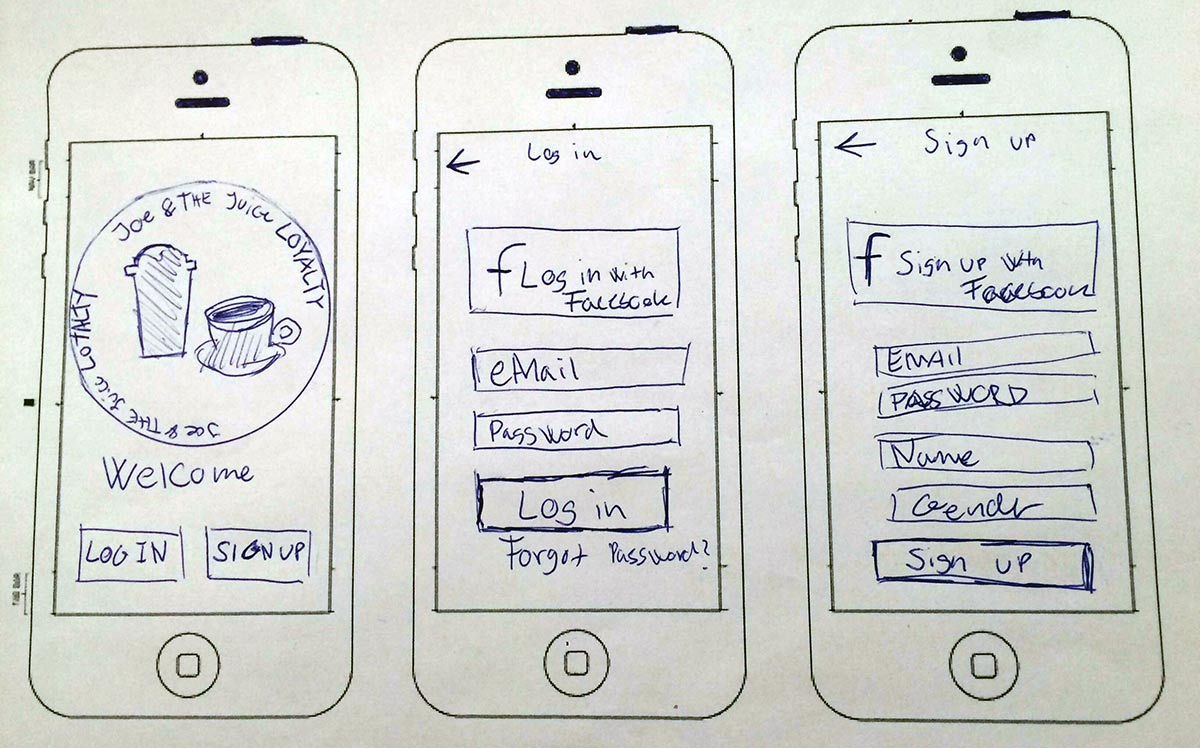 Joe & THE Juice LOYALTY
Joe & THE Juice LOYALTY
Welcome
LOG IN
SIGN UP
Log in
f Log in with
Facebook
eMail
Password
Log in
Forgot Password?
Sign up
f Sign up with
Facebook
EMAil
PASSWORD
Name
Gendr
Sign up